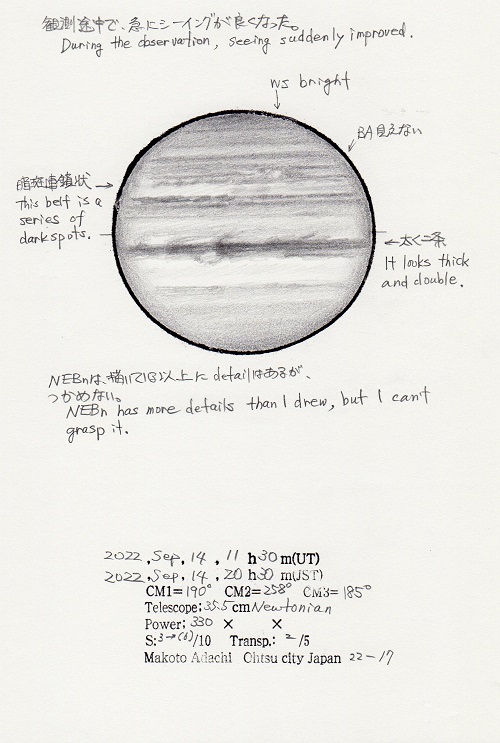 観測途中で、急にシーイングが良くなった。
During the observation, seeing suddenly improved.
ws bright
BA見えない
暗斑連鎖状
This belt is a
series of
darkspots.
太く二条
It looks thick
and double.
NEBnは、描いている以上にdetailはあるが、
つかめない。
NEBn has more details than I drew, but I can't
grasp it.
2022,Sep,14,11 h30 m(UT)
2022,Sep,14,20 h30 m(JST)
CM1=190° CM2=258° CM3=185°
Telescope;35.5cm Newtonian
Power; 330 × ×
S:3→(6)/10 Transp.: 2/5
Makoto Adachi Ohtsu city Japan 22-17